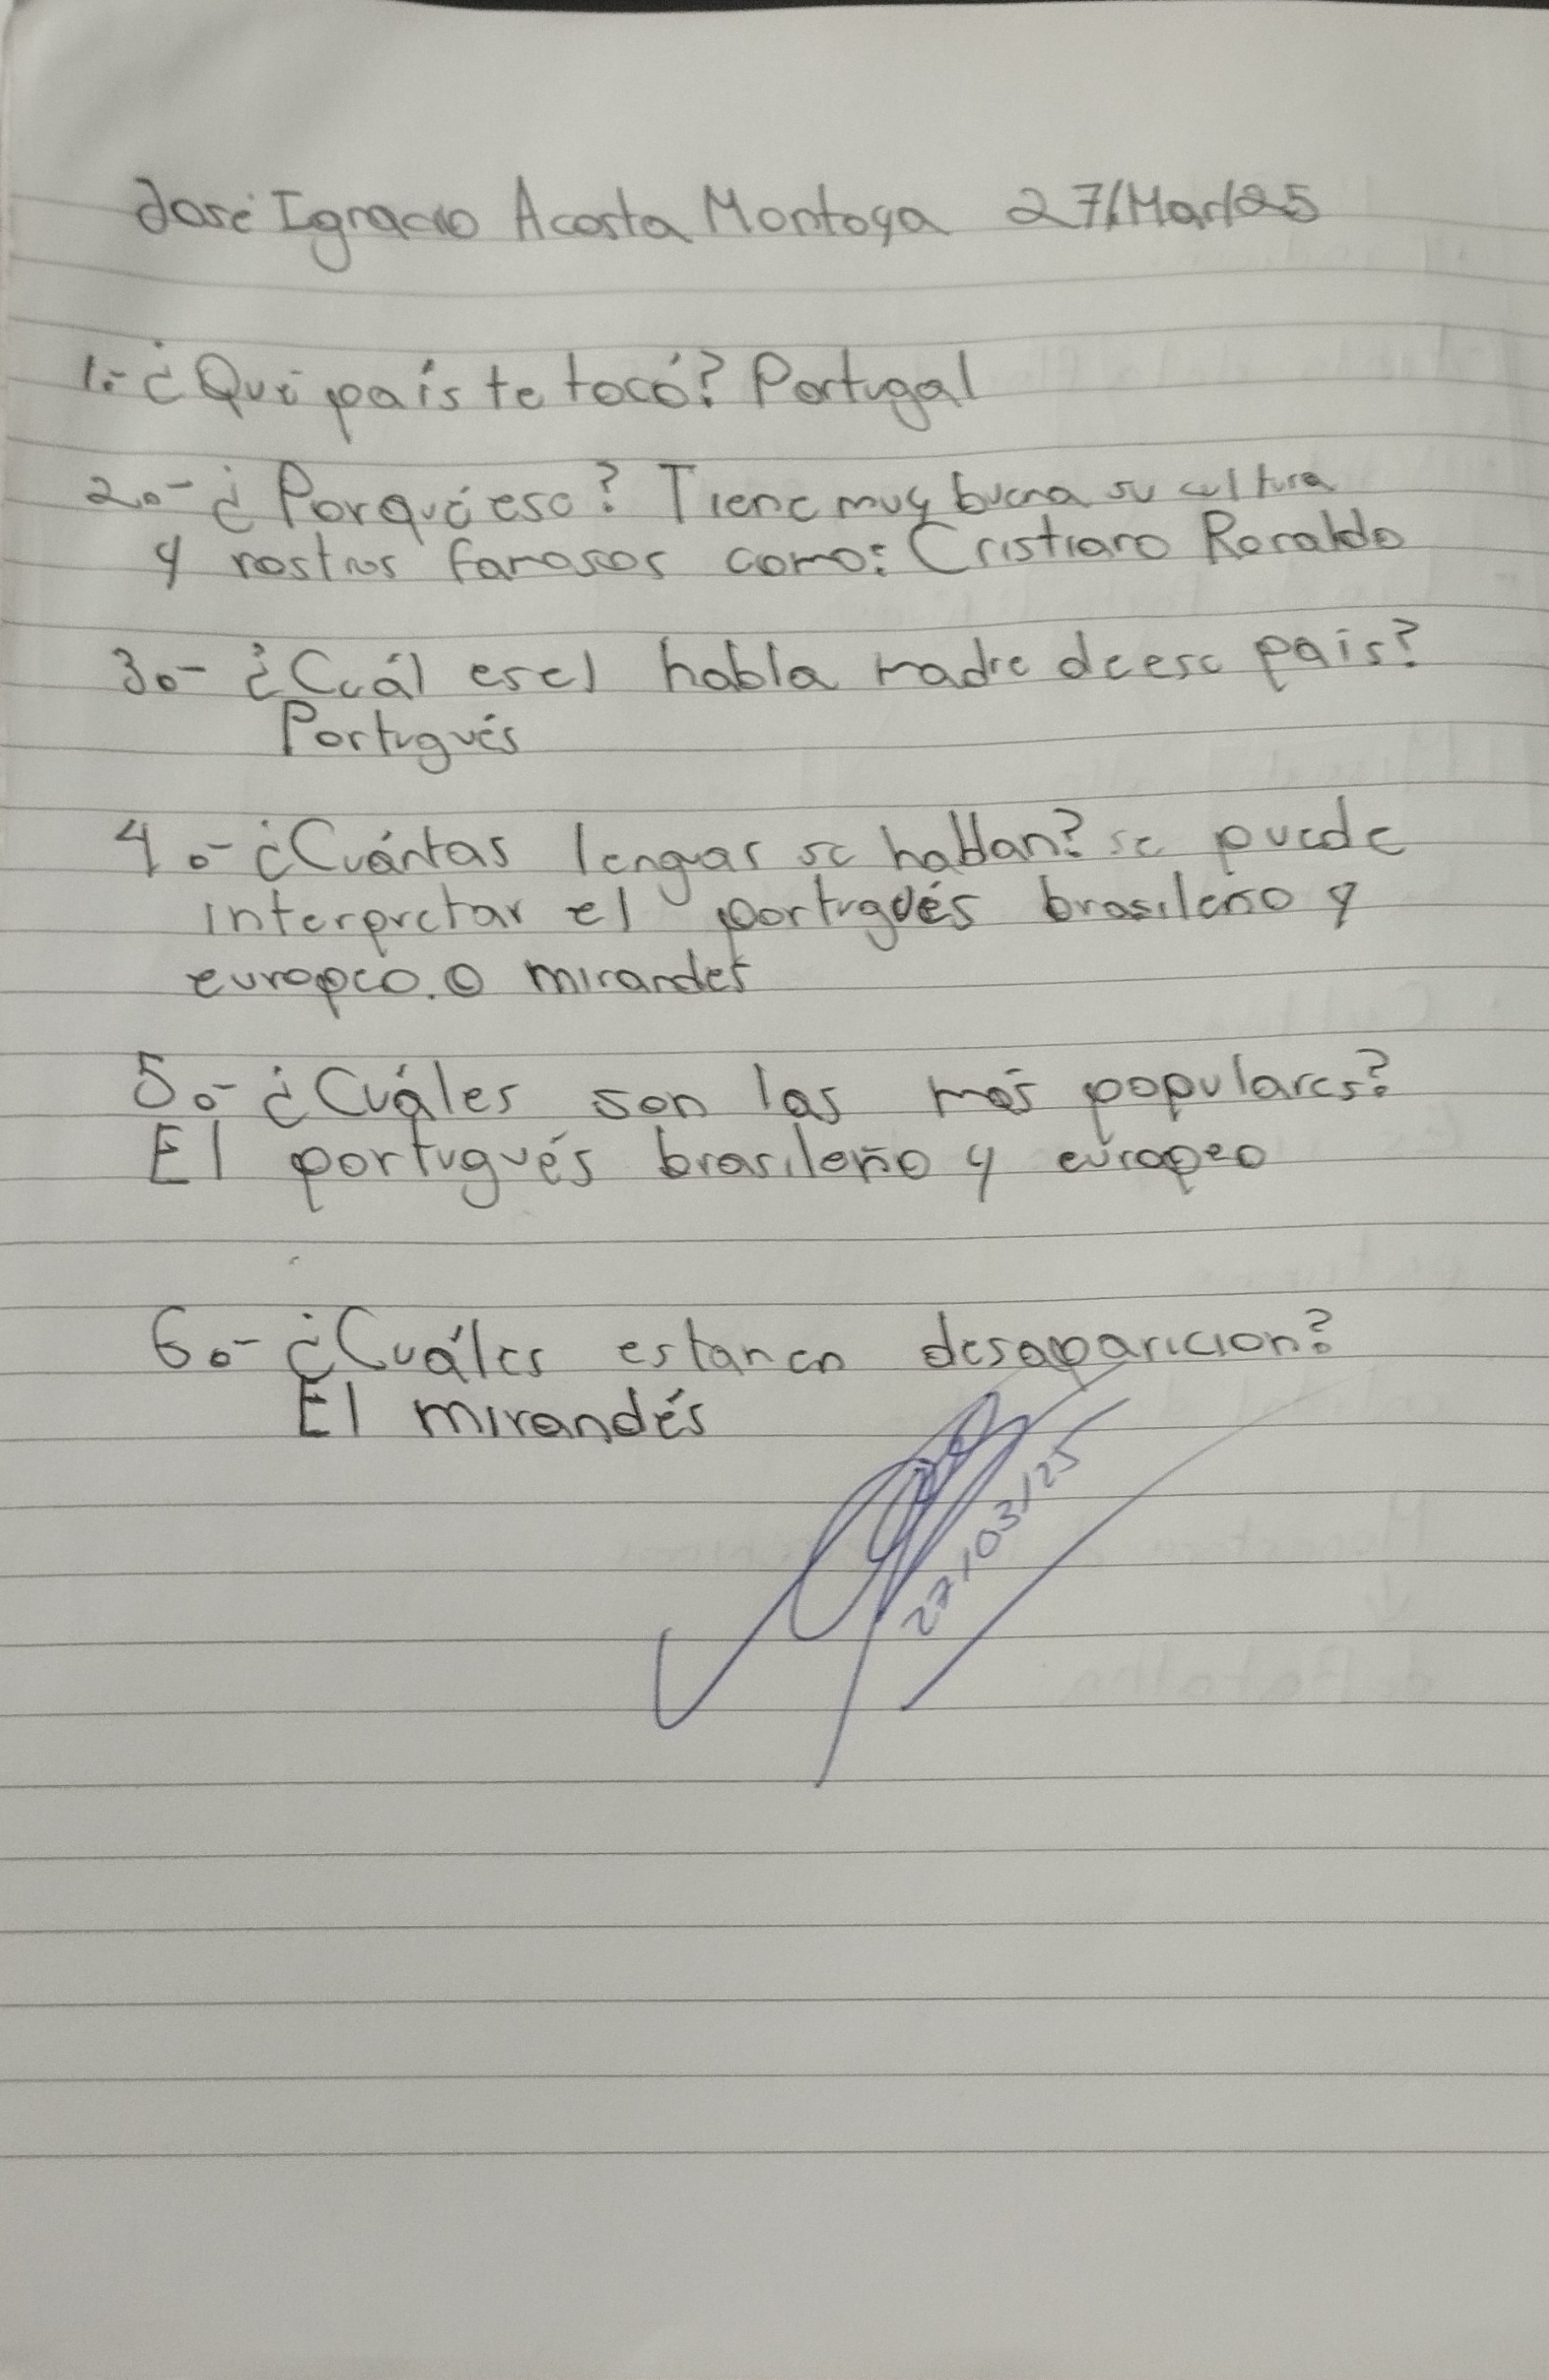 José Ignacio Acosta Montoya 27/Mar/25
1.- ¿Qué país te tocó? Portugal
2.- ¿Porqué ese? Tiene muy buena su cultura
y rostros famosos como: Cristiano Ronaldo
3.- ¿Cuál es el habla madre de ese país?
Portugués
4.- ¿Cuántas lenguas se hablan? se puede
interpretar el portugués brasileño y
europeo. O mirandes
5.- ¿Cuáles son las más populares?
El portugués brasileño y europeo
6.- ¿Cuáles estan en desaparicion?
El mirandés
27/03/25